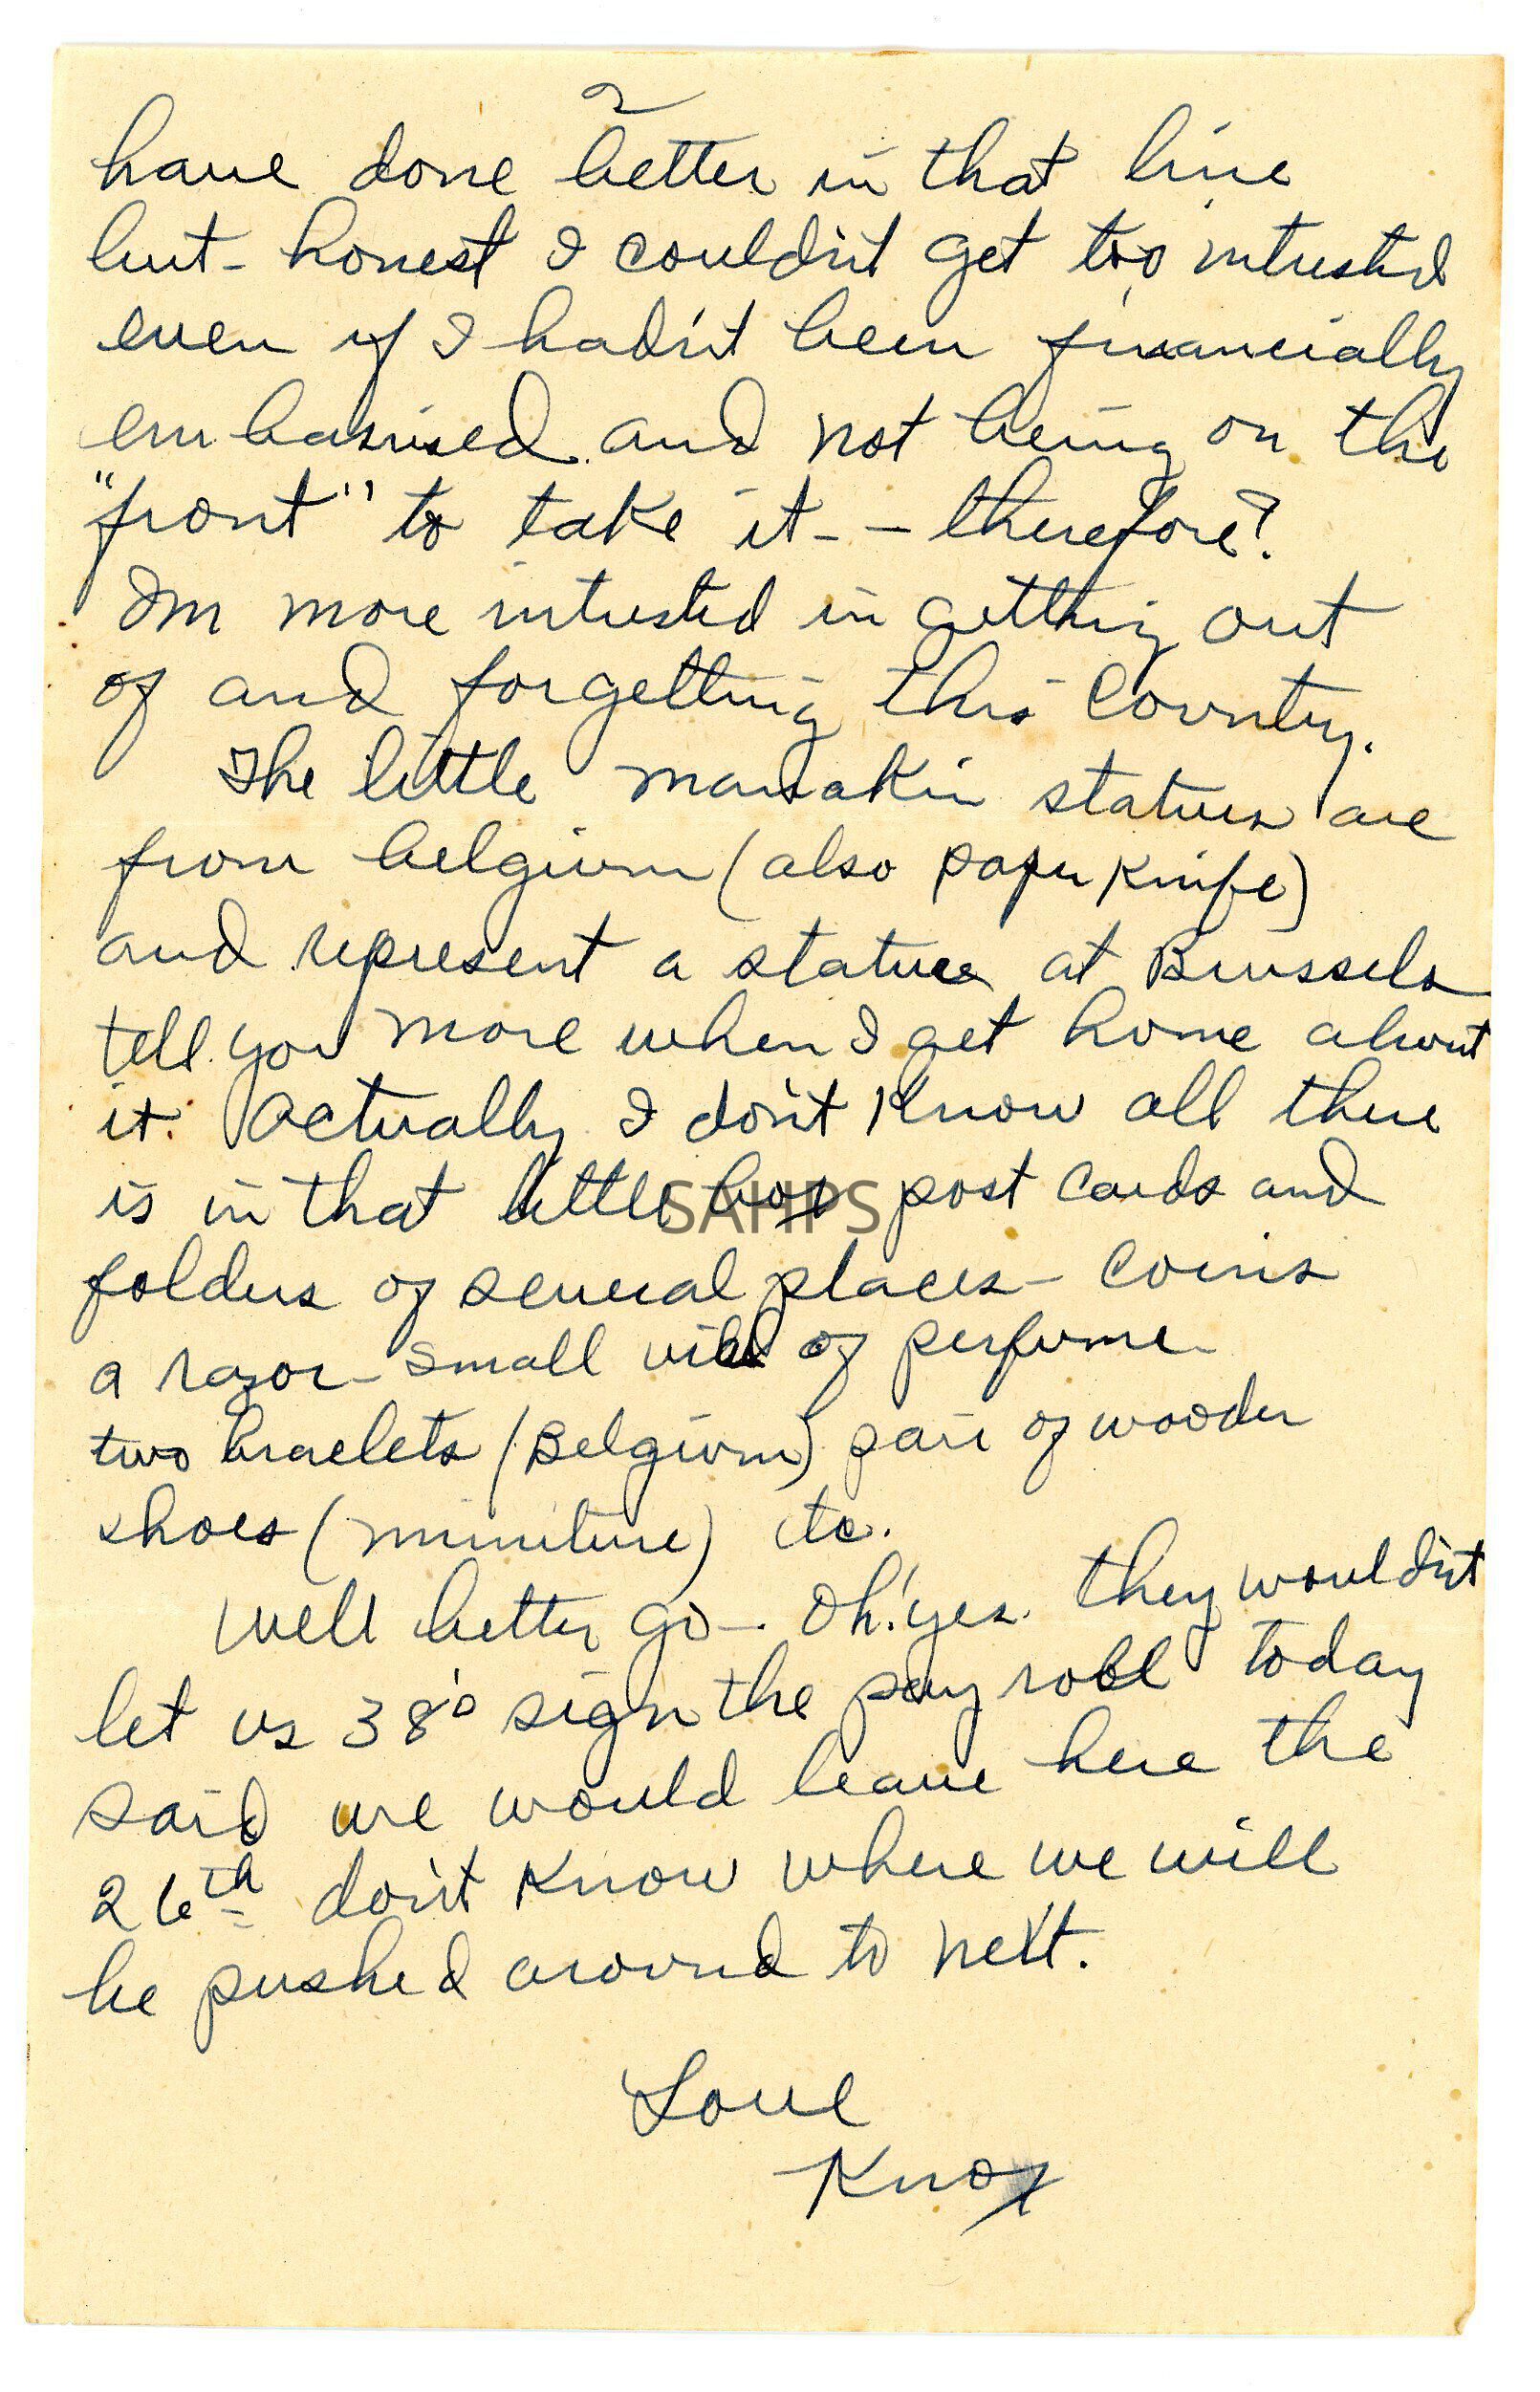 2
have done better in that line
but - honest I couldn't get too intrusted
even if I hadn't been financially
embassised and not being on the
"front" to take it - - therefore?
Im more intrusted in getting out
of and forgetting this country.
The little manakin statues are
from belgium (also paper knife)
and represent a statue at Brussels
tell you more when I get home about
it. Actually I don't know all there
is in that little box post cards and
folders of several places - coins
a razor - small vial of perfume -
two bracelets (Belgium) pair of wooden
shoes (miniture) etc.
Well better go -. Oh! yes. they wouldn't
let us 38's sign the pay roll today
said we would leave here the
26th don't know where we will
be pushed around to next.
Love
Knox
SAHPS